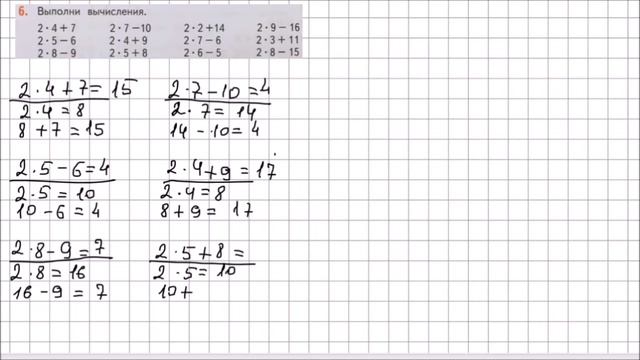 6. Выполни вычисления.
2·4+7 2·7−10 2·2+14 2·9−16
2·5−6 2·4+9 2·7−6 2·3+11
2·8−9 2·5+8 2·6−5 2·8−15
2·4+7=15 2·7−10=4
2·4=8 2·7=14
8+7=15 14−10=4
2·5−6=4 2·4+9=17
2·5=10 2·4=8
10−6=4 8+9=17
2·8−9=7 2·5+8=
2·8=16 2·5=10
16−9=7 10+